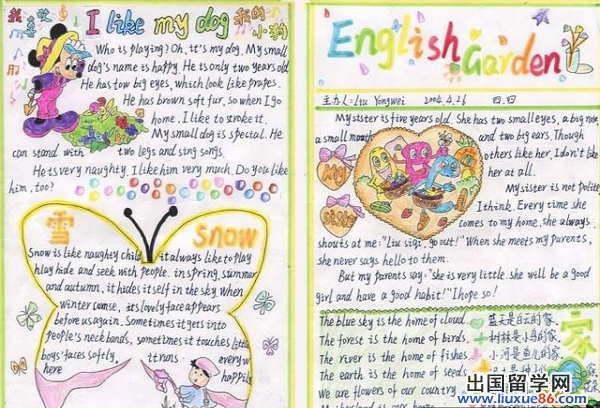 我喜欢 I like my dog 我的小狗
Who is playing? Oh, it's my dog. My small
dog's name is happy. He is only two years old
He has tow big eyes, which look like prapes.
He has brown soft fur, so when I go
home, I like to stroke it.
My small dog is special. He
can stand with two legs and sing songs.
He is very naughty, I like him very much. Do you like
him, too?
雪 Snow
Snow is like naughty child it always like to play
hlay hide and seek with people. in spring, summer
and autumn, it hides itself in the sky. When
winter cumse, its lovely face appears
before us again. Sometimes it gets into
people's neck bands, sometimes it touches little
boys' faces softly, it trans everyw
here happily
English Garden
主办人:Liu Yongwei 2004.4.26 四.四
My sister is five years old. She has two small eyes, a big nose,
a small mouth and two big ears. Though
others like her, I don't like
her at all.
My Sister
My sister is not polite,
I think. Every time she
comes to my home, she always
shouts at me: "Liu siqi, go out!" When she meets my parents,
she never says hello to them.
But my parents say: "she is very little. she will be a good
girl and have a good habit!" I hope so!
The blue sky is the home of cloud. 蓝天是白云的家,
The forest is the home of birds, 树林是小鸟的家,
The river is the home of fishes, 小河是鱼儿的家,
The earth is the home of seeds
We are flowers of our country
家
出国留学网
www.liuxue86.com